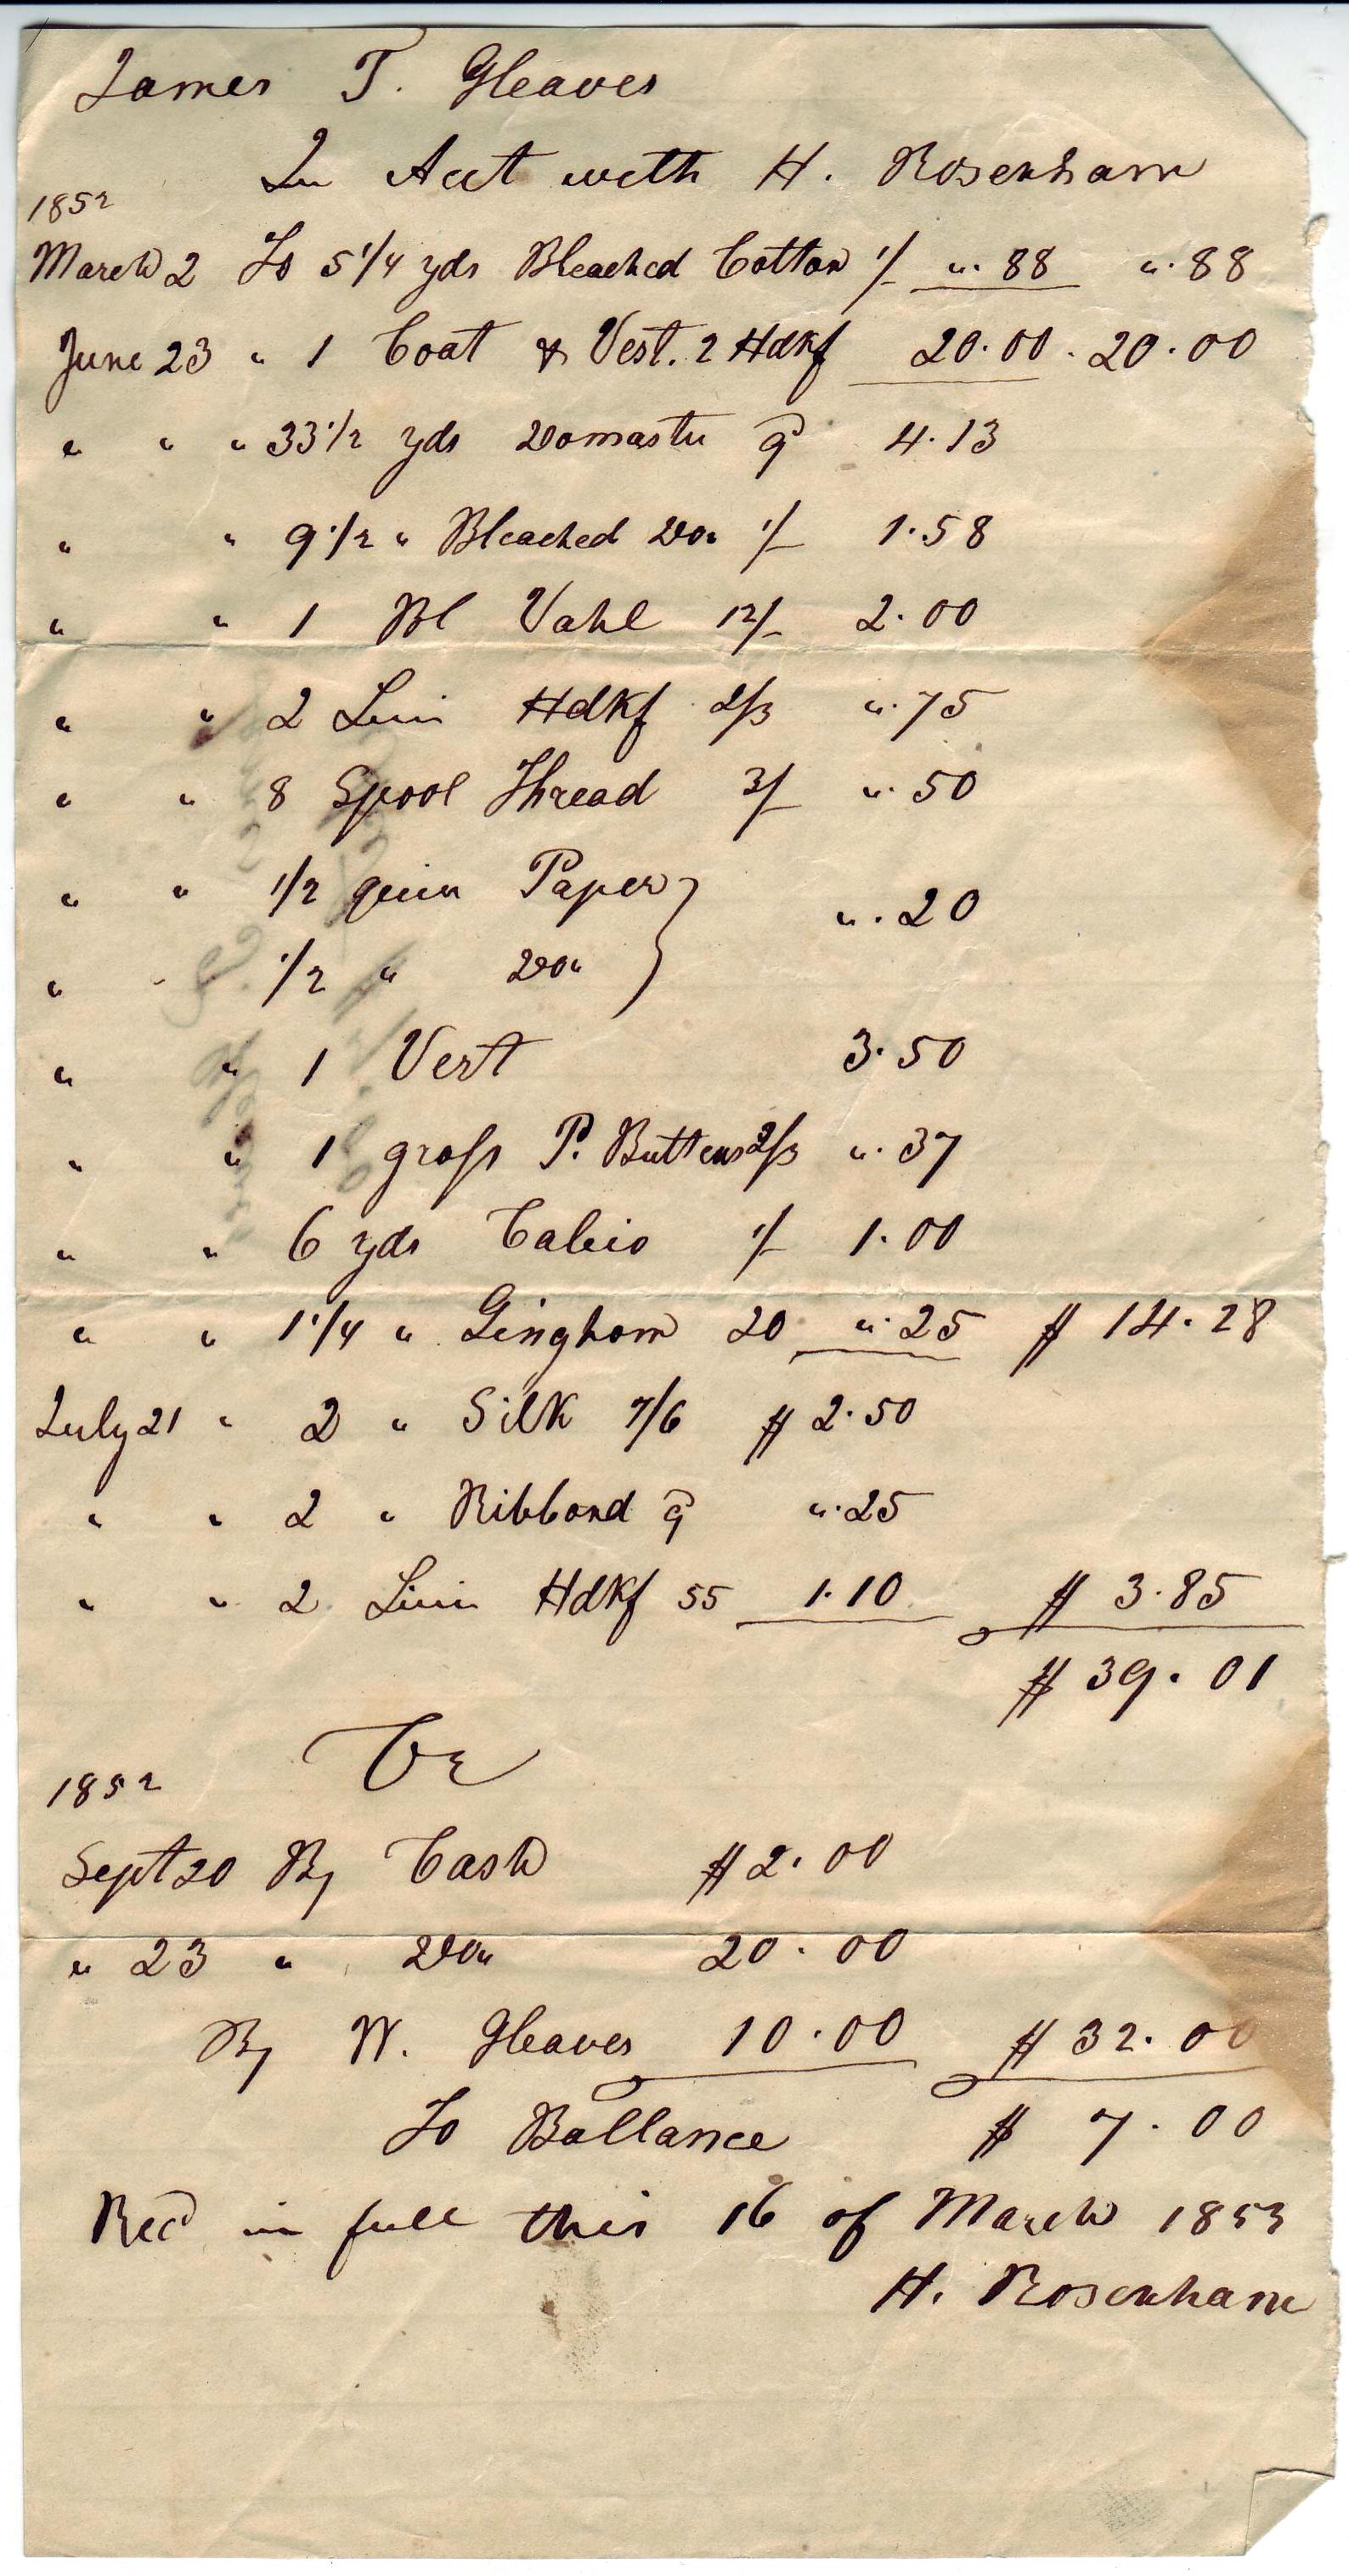 James T. Gleaves
In Acct with H. Rosenham
1852
March 2 To 5 1/4 yds Bleached Cotton 1/- ". 88 ". 88
June 23 " 1 Coat & Vest. 2 Hdkf 20.00. 20.00
" " " 33 1/2 yds Domastic 9 4.13
" " 9 1/2 " Bleached Do" 1/- 1.58
" " 1 Bl Vahl 12/- 2.00
" " 2 Linn Hdkf 2/3 ". 75
" " 8 Spool Thread 3/- ". 50
" " 1/2 quin Paper ". 20
" " 1/2 " Do"
" " 1 Vest 3.50
" " 1 gross P. Buttens 2/3 ". 37
" " 6 yds Calico 1/- 1.00
" " 1 1/4 " Gingham 20 ". 25 $ 14.28
July 21 " 2 " Silk 7/6 $ 2.50
" " 2 " Ribbond 9 ". 25
" " 2 Linn Hdkf 55 1.10 $ 3.85
$ 39.01
Cr
1852
Sept 20 By Cash $ 2.00
" 23 " Do" 20.00
By W. Gleaves 10.00 $ 32.00
To Ballance $ 7.00
Recd in full this 16 of March 1853
H. Rosenham